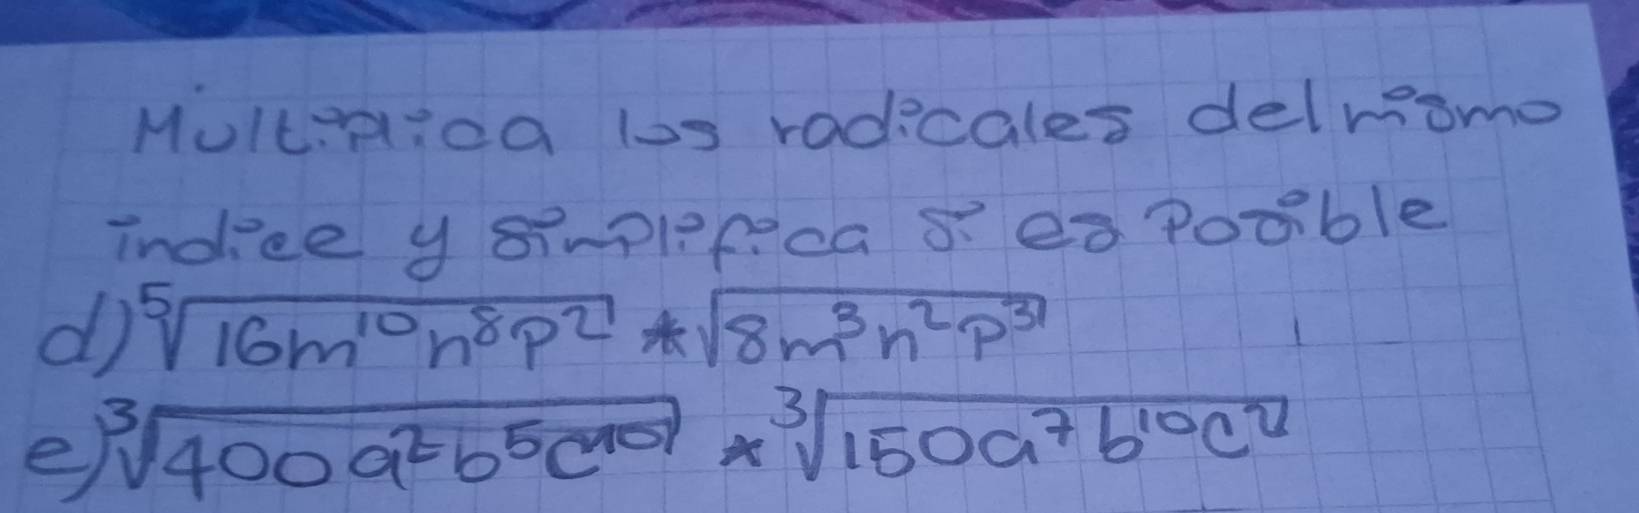 Multiplica los radicales del mismo
indice y simplifica si es Posible
d) ⁵√16m¹⁰n⁸p² * √8m³n²p³
e) ³√400a²b⁵c¹⁰ * ³√150a⁷b¹⁰c²